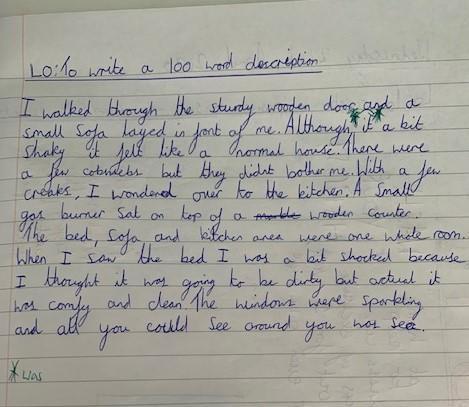 LO: To write a 100 word description
I walked through the sturdy wooden door and a
small sofa layed in font of me. Although * it a bit
shaky it felt like a normal house. There were
a few cobwebs but they didnt bother me. With a few
creaks, I wondered over to the kitchen. A small
gas burner sat on top of a marble wooden counter.
The bed, sofa and kitchen area were one whole room.
When I saw the bed I was a bit shocked because
I thought it was going to be dirty but actual it
was comfy and clean. The windows were sparkling
and all you could see around you was sea.
* was